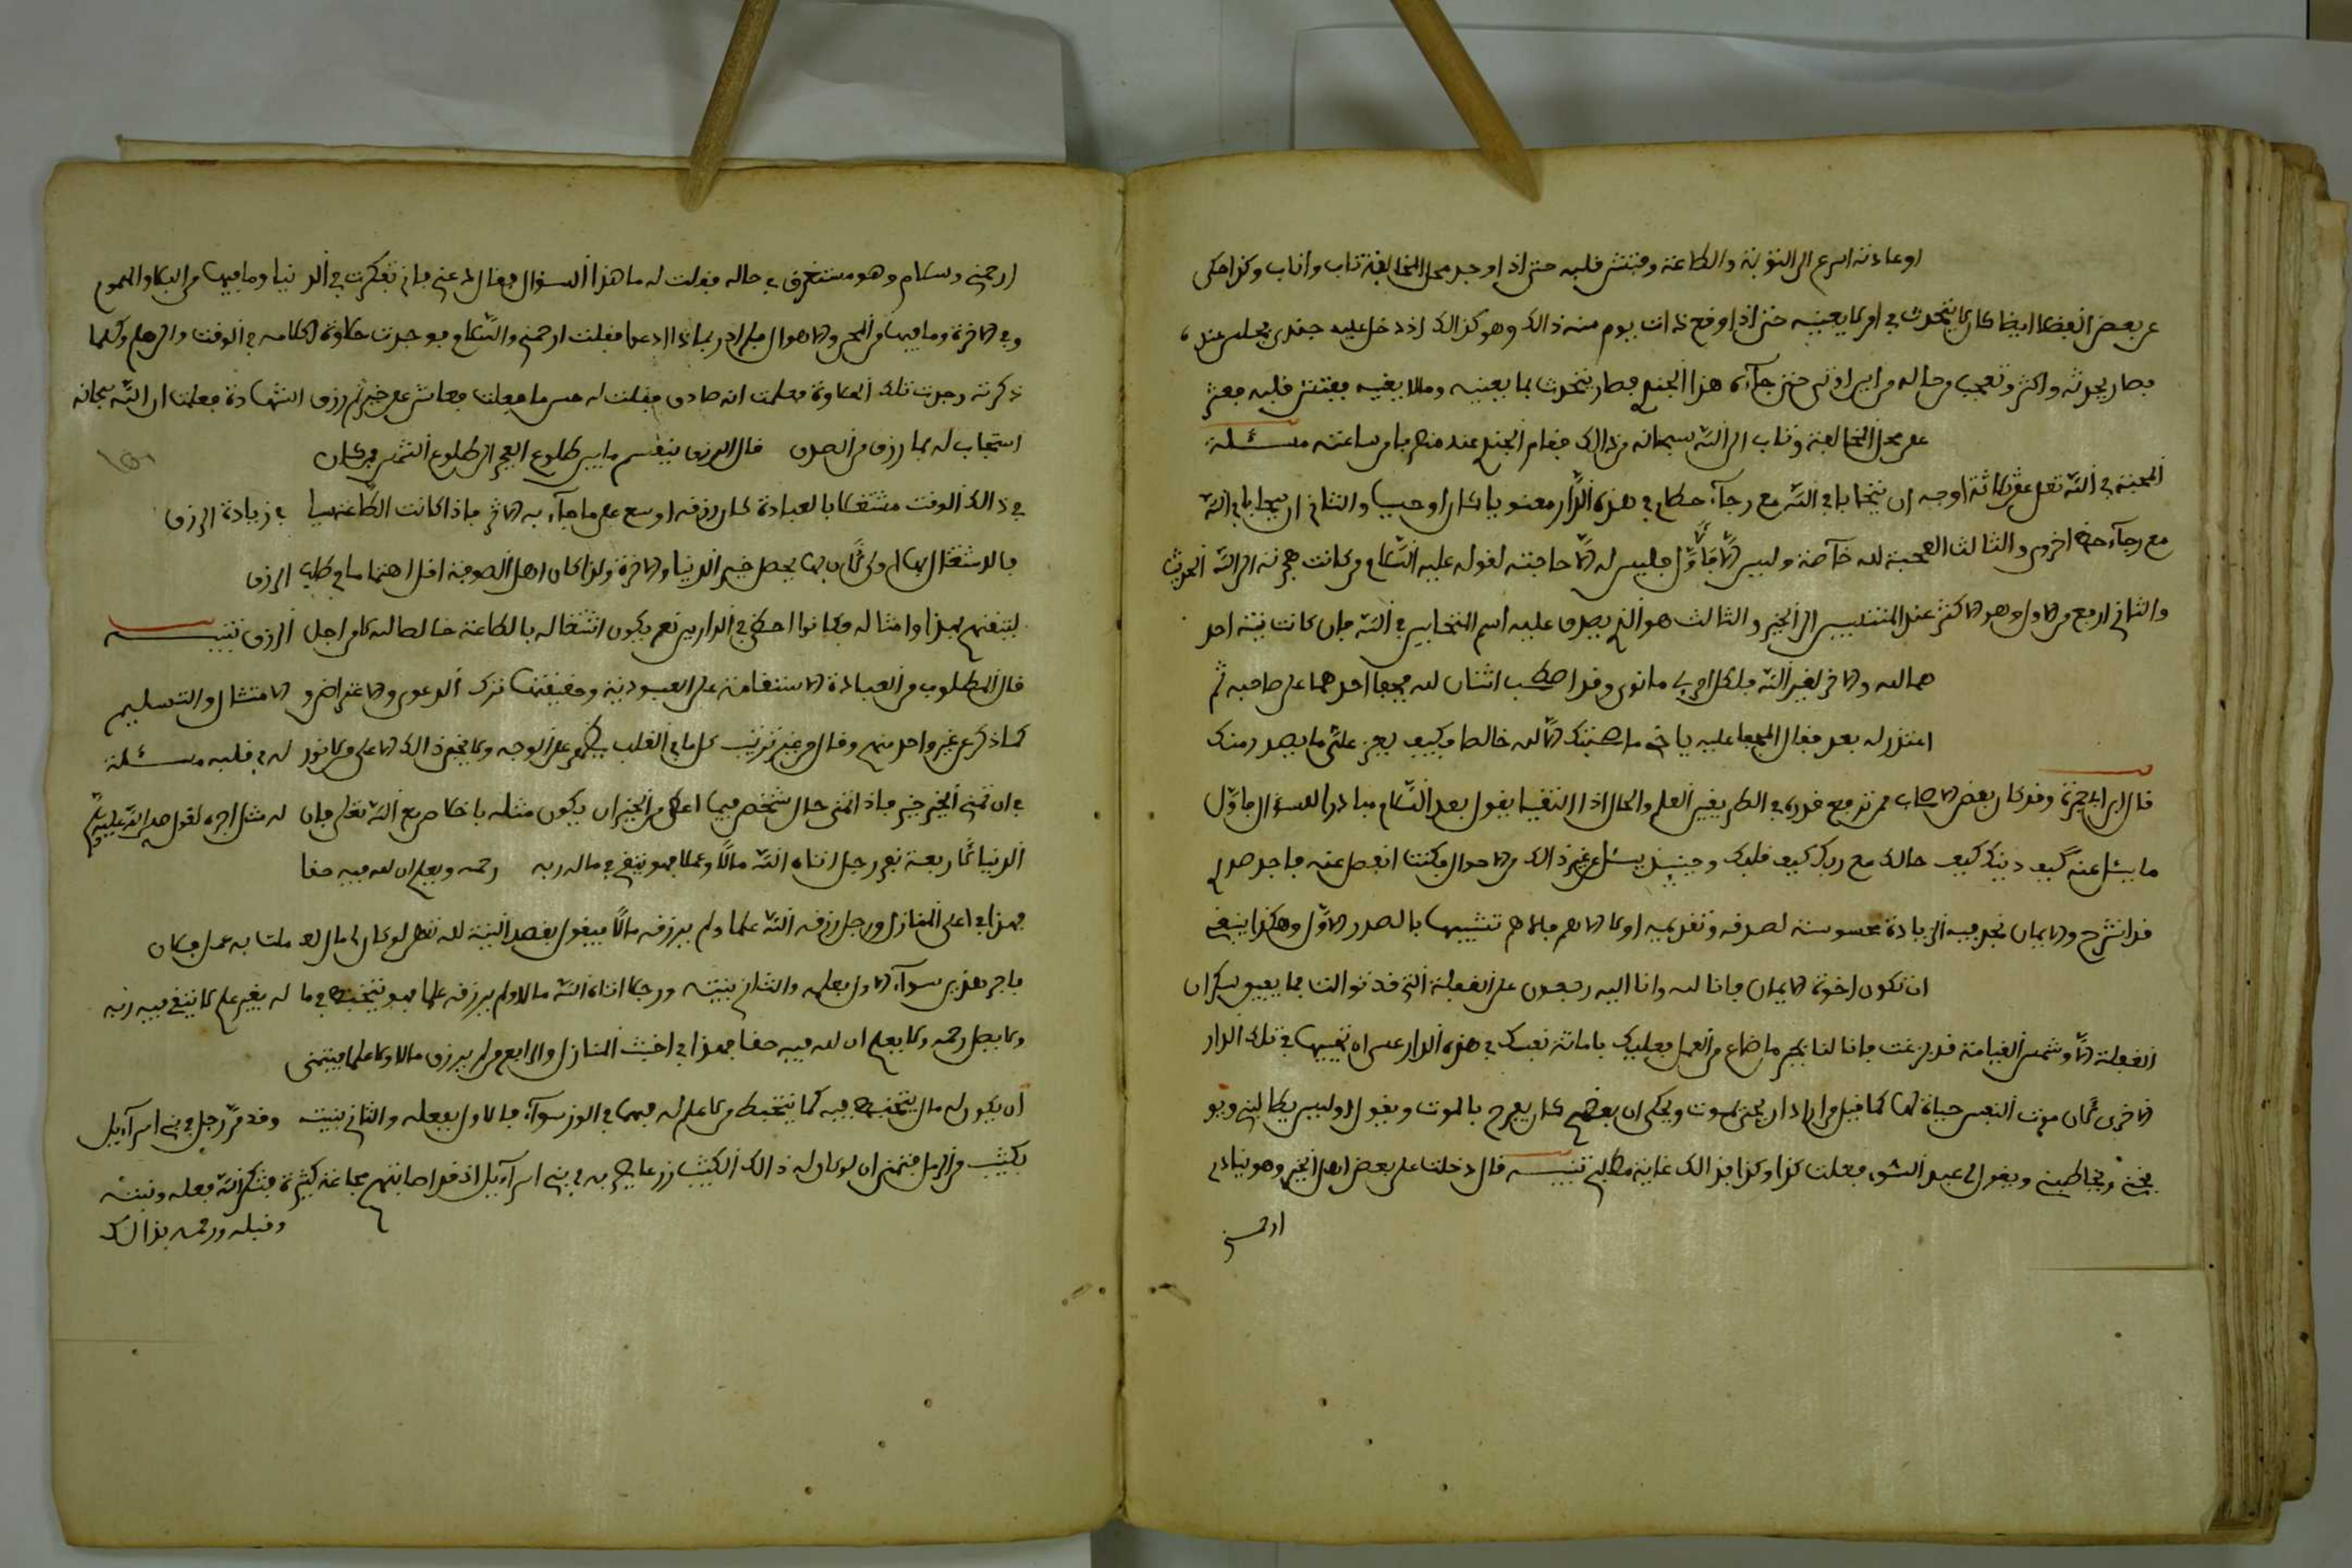 او عادته اسرع الى التوبة والطاعة وفتش قلبه حتى اذا وجد محل المخالفة تاب واناب وكذا حكى
عن بعض الفضلا ايضا كان لا يتحدث في امر لا يعنيه حتى اذا وقع ذات يوم منه ذالك وهو كذالك اذ دخل عليه جندي فجلس عنده
فصار يحدثه واكثر وتعجب من حاله من اين اوتي حتى جاءه هذا الجندي فصار يتحدث بما يعنيه وما لا يعنيه ففتش قلبه فعثر
على محل المخالفة وتاب الى الله سبحانه من ذالك فقام الجندي عنه منصرفا من ساعته مسئلة
المحبة في الله تعلى على ثلاثة اوجه ان يتحابا في الله مع رجاء حظ في هذه الدار معنويا كان او حسيا والثاني ان يتحابا في الله
مع رجاء حظ اخروي والثالث الصحبة لله خاصة وليس الا فالاول فليس له الا حاجته لقوله عليه السلام من كانت هجرته الى الله الحديث
والثاني ارفع من الاول وهو الاكثر عند المنتسبين الى الخير والثالث هو الذي يصدق عليه اسم المتحابين في الله فان كانت نية احد
هما لله والاخر لغير الله فلكل امرئ ما نوى وقد اصطحب اثنان لله فجفا احدهما على صاحبه ثم
اعتذر له بعد فقال المجفا عليه يا اخي ما صحبتك الا لله خالصا فكيف يعز علي ما يصدر منك
قال ابن ابي جمرة وقد كان بعض الاصحاب ممن ترفع قدره في الطريقين العلم والحال اذا التقيا يقول بعد السلام مبادرا للسؤال فاول
ما يسئل عنه كيف دينك كيف حالك مع ربك كيف قلبك وحينئذ يسئل عن غير ذالك من الاحوال فكنت انفصل عنه فاجد صدري
قد انشرح والايمان نجد فيه الزيادة محسوسة لصدقه وتقديمه اولا الاهم فالاهم تشبيها بالصدر الاول وهكذا ينبغي
ان تكون اخوة الايمان فانا لله وانا اليه راجعون على الغفلة التي قد توالت فما يفيق سكران
الغفلة الا وشمس القيامة قد بزغت فانا لنا بجبر ما ضاع من العمل فعليك باماتة نفسك في هذه الدار عسى ان تحييها في تلك الدار
الاخرى لان موت النفس حياة لها كما قيل من اراد ان يحيى يموت ويحكى ان بعضهم كان يفرح بالموت ويقول اوليس يطالبني ويو
بخني ويخاطبني ويقول لي عبد السوء فعلت كذا وكذا فذالك غاية مطالبي تنبيه قال دخلت على بعض اهل الخير وهو ينادي
ارحمني
ارحمني وسلام وهو مستغرق في حاله فقلت له ما هذا السؤال فقال دعني فاني تفكرت في الدنيا وما فيها من البلا والهموم
وفي الاخرة وما فيها من المحن والاهوال فلم ادر بماذا ادعوا فقلت ارحمني والسلام فوجدت حلاوة لكلامه في الوقت والى هلم وكلما
ذكرته وجدت تلك الحلاوة فعلمت انه صادق فقلت له حسن ما فعلت فعاش على خير ثم رزق الشهادة فعلمت ان الله سبحانه
استجاب له بما رزق من الصدق قال الرزق ينقسم ما بين طلوع الفجر الى طلوع الشمس فمن كان
في ذالك الوقت مشتغلا بالعبادة كان رزقه اوسع على ما جاء به الاثر فاذا كانت الطاعة سببا في زيادة الرزق
فالاشتغال بها اولى لان بها يحصل خير الدنيا والاخرة ولذا كان اهل الصوفية اقل اهتماما في طلب الرزق
لثقتهم بهذا وامثاله فكانوا احظى في الدارين نعم يكون اشتغاله بالطاعة خالصا لله لا من اجل الرزق تنبيه
قال المطلوب من العبادة الاستقامة على العبودية وحقيقتها ترك الدعوى والاعتراض والامتثال والتسليم
كما ذكره غير واحد منهم وقال من غير ترتيب كل ما في القلب يظهر على الوجه ولا يخفى ذالك الا على من لا نور له في قلبه مسئلة
في ان تمني الخير خير فاذا تمنى حال شخص فيما اعطي من الخير ان يكون مثله باخلاص مع الله تعلى فان له مثل اجره لقوله صلى الله عليه وسلم
الدنيا لاربعة نفر رجل اتاه الله مالا وعلما فهو يتقي في ماله ربه رحمه ويعلم ان لله فيه حقا
فهذا في اعلى المنازل ورجل رزقه الله علما ولم يرزقه مالا فيقول بقصد النية لله تعلى لو كان لي مال لعملت به عمل فلان
فاجرهما سواء الاول بعلمه والثاني بنيته ورجلا اتاه الله مالا ولم يرزقه علما فهو يتخبط في ماله بغير علم لا يتقي فيه ربه
ولا يصل رحمه ولا يعلم ان لله فيه حقا فهذا في اخبث المنازل والرابع من لم يرزق مالا ولا علما فيتمنى
ان يكون له مال يتخبط فيه كما يتخبط من لا علم له فهما في الوزر سواء فالاول بفعله والثاني بنيته وقد مر رجل في بني اسراءيل
بكثيب من الرمل فتمنى ان لو كان له ذالك الكثيب زرعا يجريه في بني اسراءيل اذ قد اصابتهم مجاعة كثيرة فشكر الله فعله ونيته
وقبله ورحمه بذالك